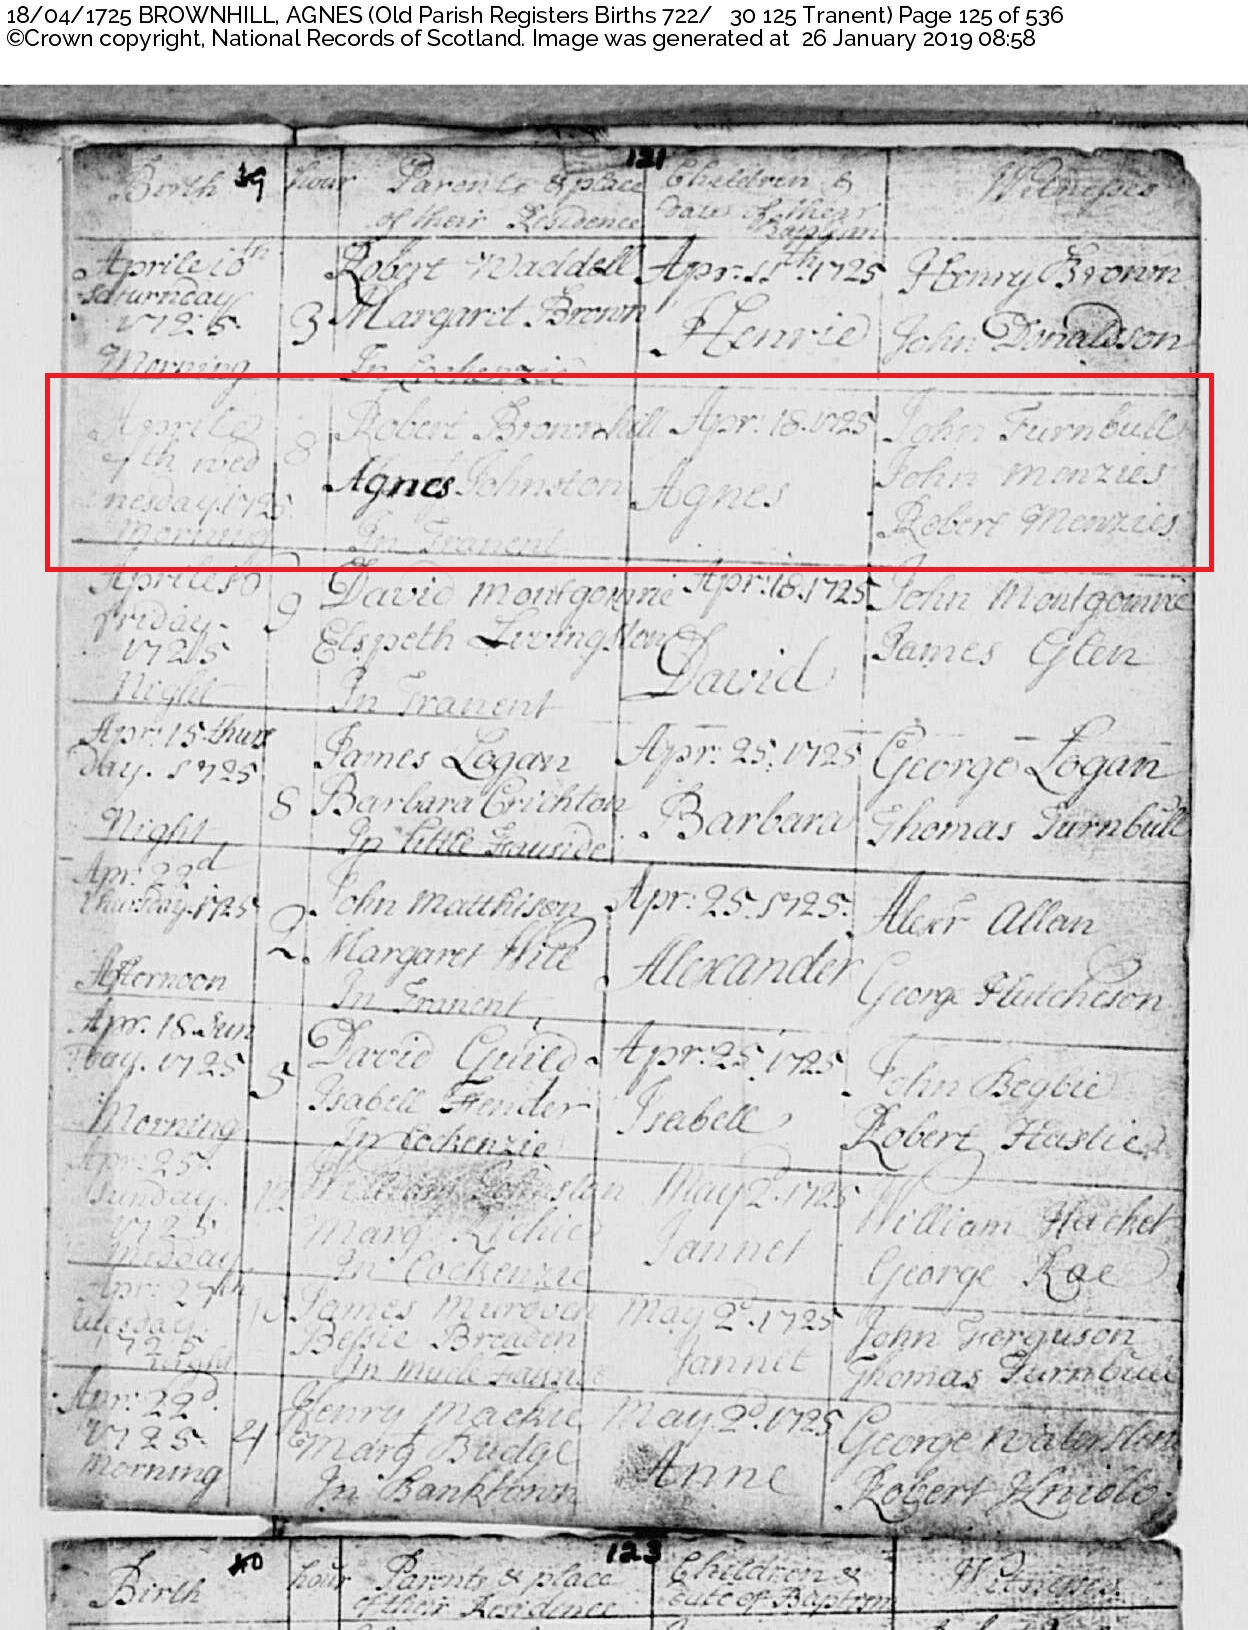 18/04/1725 BROWNHILL, AGNES (Old Parish Registers Births 722/ 30 125 Tranent) Page 125 of 536
©Crown copyright, National Records of Scotland. Image was generated at 26 January 2019 08:58
121
Birth 39 hour Parents & place Children & Witnesses
of their Residence Dates of their
Baptism
Aprile 10th Robert Waddell Apr: 11th 1725 Henry Brown
Saturnday
1725 3 Margaret Brown Henrie John Donaldson
Morning In Cockenzie
Aprile 8 Robert Brownhill Apr: 18. 1725 John Turnbull
7th wed Agnes Johnston Agnes John Menzies
nesday. 1725 Robert Menzies
Morning In Tranent
Aprile 9 David Montgomrie Apr: 18. 1725 John Montgomrie
friday. Elspeth Livingston James Glen
1725 David
Night In Tranent
Apr: 15 thurs James Logan Apr: 25. 1725 George Logan
Day. 1725
8 Barbara Crichton Barbara Thomas Turnbull
Night In little Fauside
Apr: 22d John Matthison Apr: 25. 1725. Alexr Allan
thursday. 1725
2 Margaret Alexander George Hutcheson
Afternoon In Tranent
Apr. 18 Sun David Guild Apr: 25. 1725 John Begbie
Day. 1725 5
Isabell Fender Isabell Robert Hastie
Morning In Cockenzie
Apr: 25. William Johnston May 2d. 1725 William Hachet
Sunday. 12
1725 Marg Jannet George Rae
midday In Cockenzie
Apr: 27th James Murdoch May 2d. 1725 John Ferguson
tuesday
1725 Bessie Jannet Thomas Turnbull
night In
Apr: 22d. Henry Mackie May 2d. 1725 George Waterston
1725. 4 Marg Budge Anne Robert
Morning In Banktown
123
Birth 40 hour Parents & place Children & Witnesses
of their Residence Date of Baptism